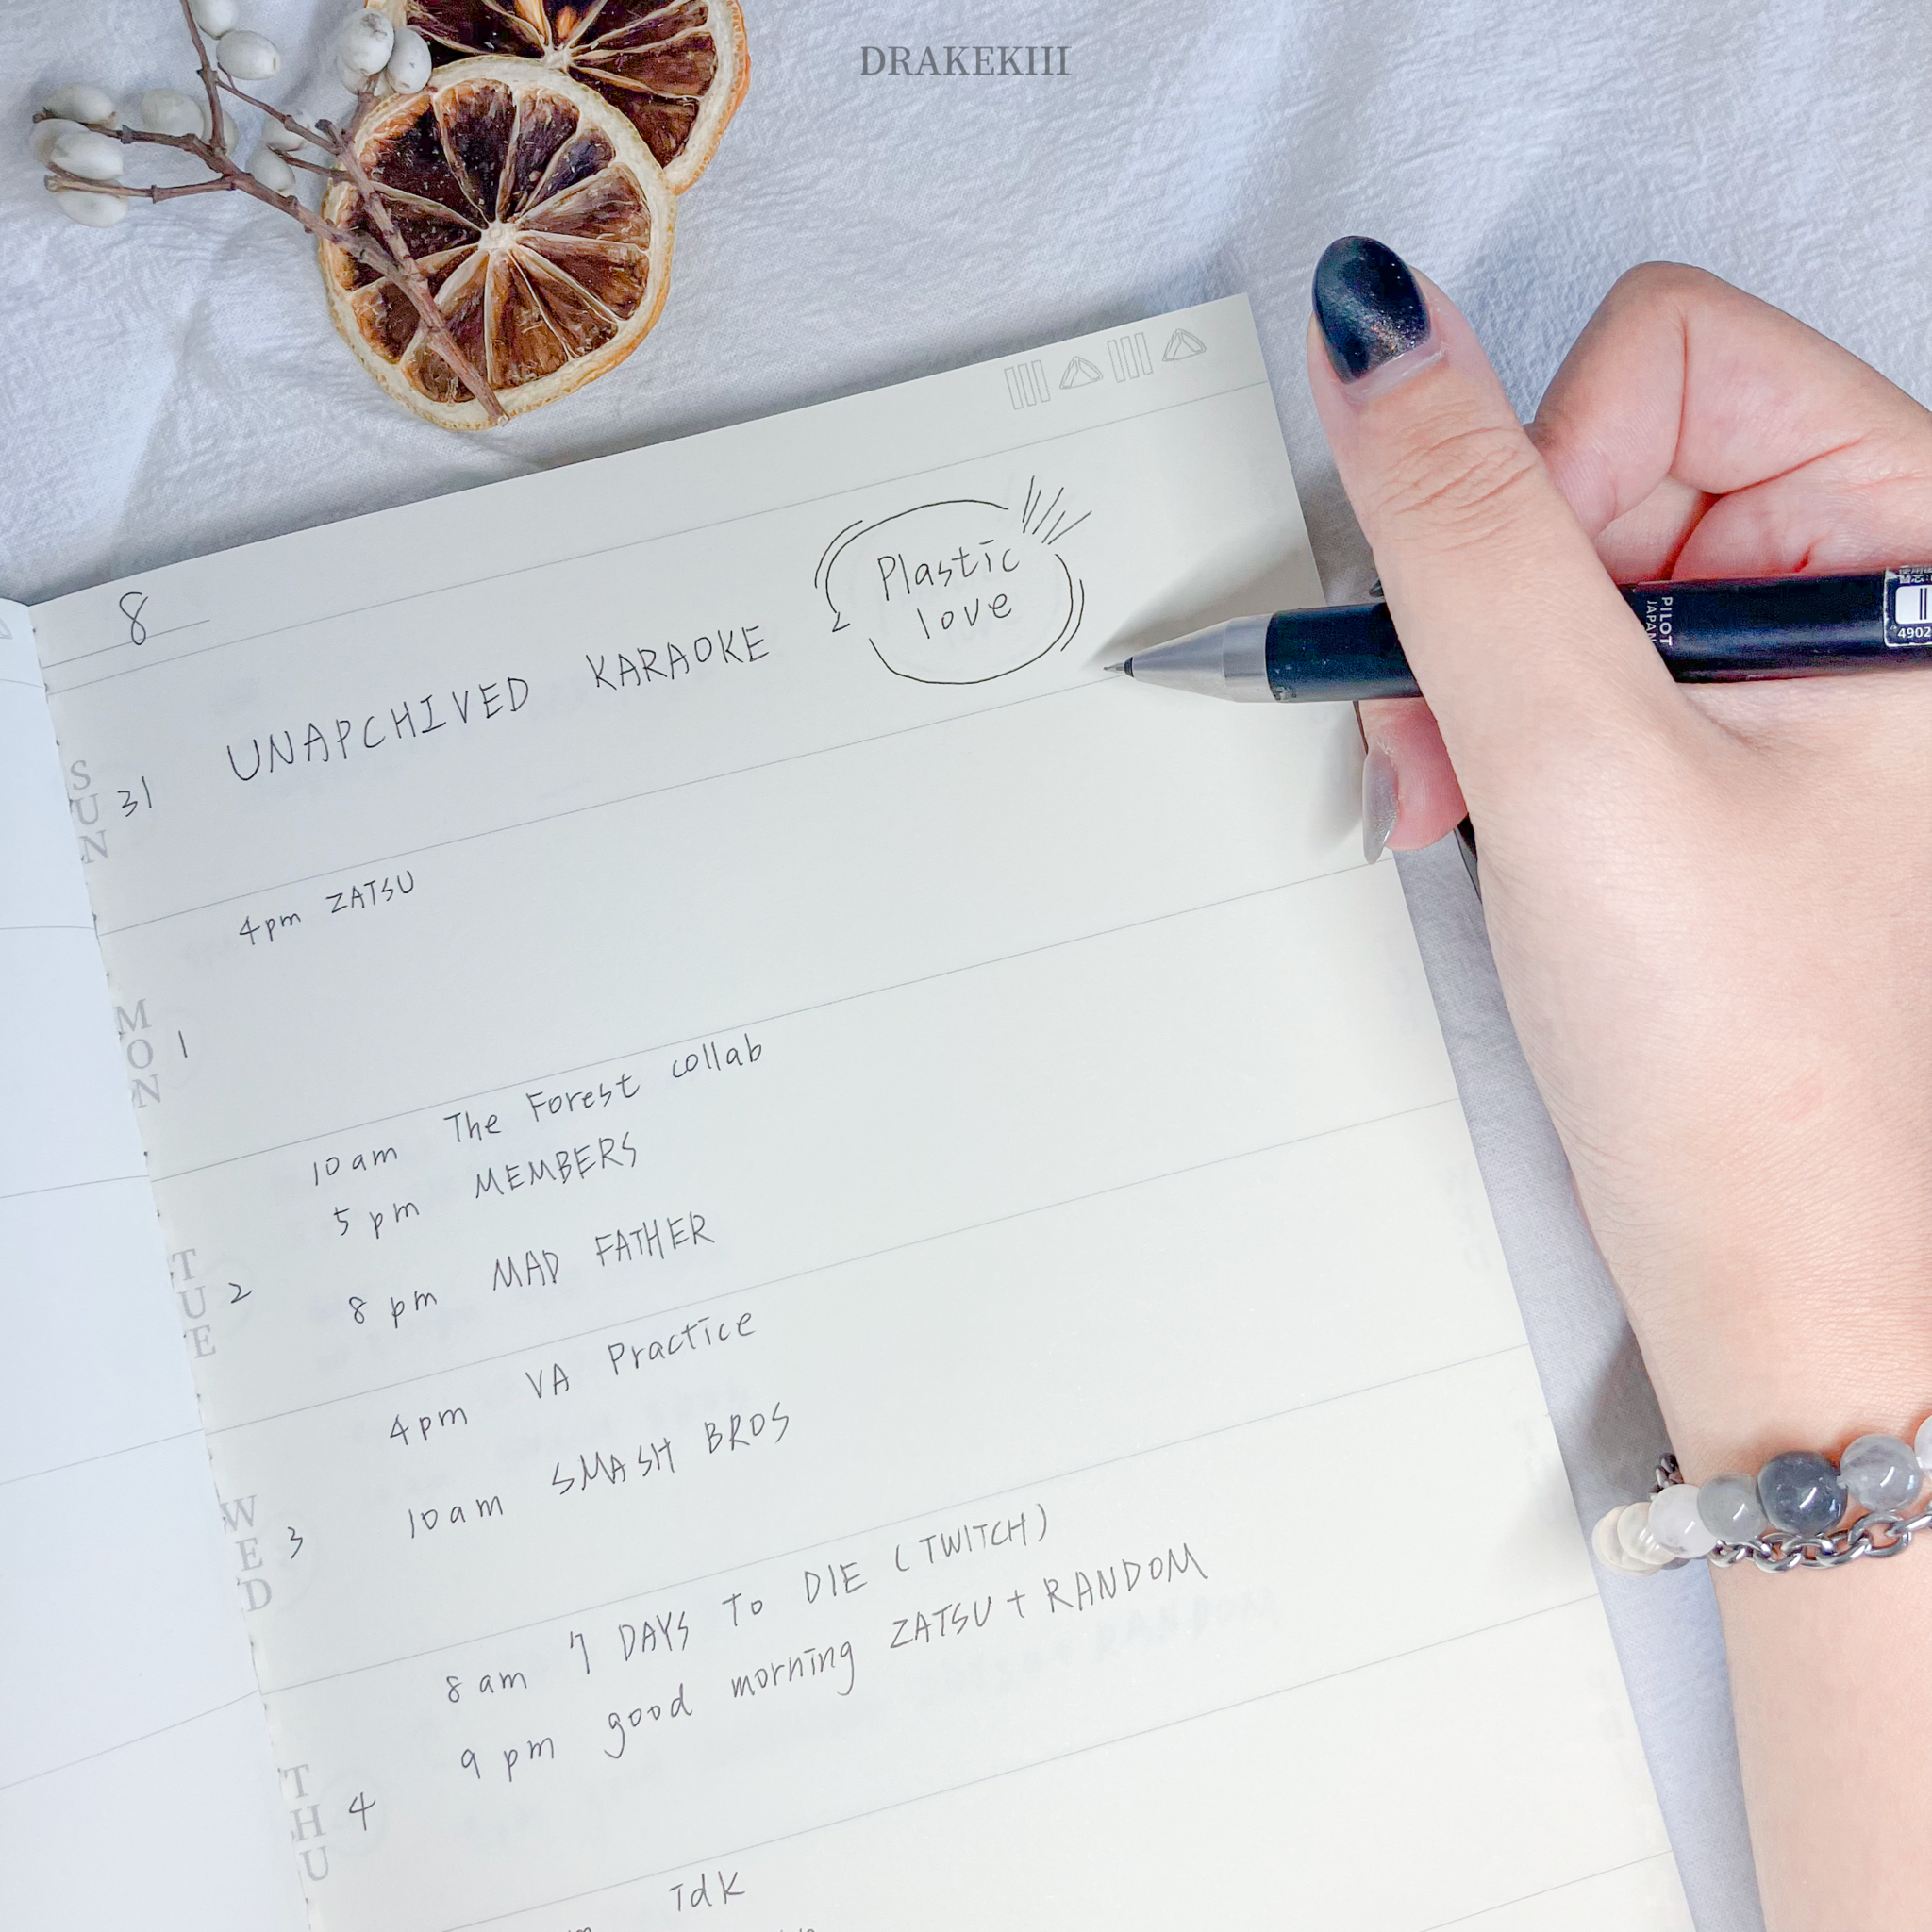 DRAKEKIII
8
Plastic
love
UNAPCHIVED KARAOKE
PILOT
JAPAN
4902
SUN 31
4pm ZATSU
MON 1
10am The Forest collab
5pm MEMBERS
8pm MAD FATHER
TUE 2
4pm VA Practice
10am SMASH BROS
WED 3
8am 7 DAYS To DIE (TWITCH)
9pm good morning ZATSU + RANDOM
THU 4
IdK